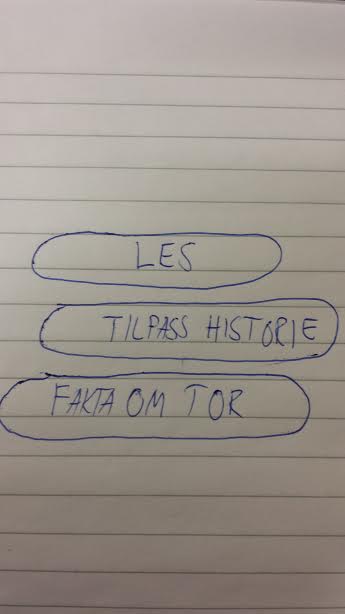 LES
TILPASS HISTORIE
FAKTA OM TOR